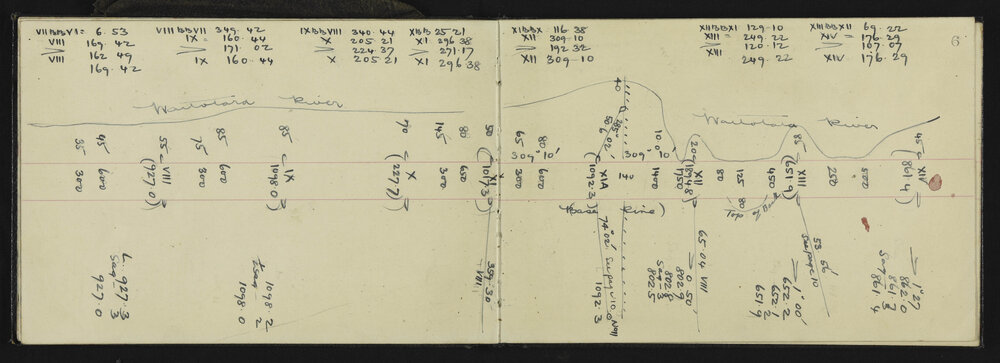 VII BB VI = 6.53
VIII 169.42
> 162.49
VIII 169.42
VIII BB VII 349.42
IX = 160.44
> 171.02
IX 160.44
IX BB VIII 340.44
X 205.21
> 224.37
X 205.21
X BB 25.21
XI 296.38
> 271.17
XI 296.38
XI BB X 116.38
XII 309.10
> 192.32
XII 309.10
XII BB XI 129.10
XIII = 249.22
> 120.12
XIII 249.22
XIII BB XII 69.22
XIV = 176.29
> 107.07
XIV 176.29
6
Waitotara River
Waitotara River
35 300
45 600
55 VIII (927.0)
75 300
85 600
85 IX (1098.0)
70 X (227.7)
145 300
80 650
50 XI (1017.3)
65 300
80 600
309° 10'
XIA (1092.3)
40
285° 02'
309° 10'
100 1400
20 XII
1750
80 125
450
85 XIII (651.9)
80 250
500
45 XIV (861.4)
(Base Line)
Top
L 927.3
sag .3
927.0
1098.2
sag .2
1098.0
359.30
VIII
74°02'
1092.3
65.04 VIII
> 0.50'
802.9
802.8
sag .3
802.5
> 1°00'
652.2
652.1
.2
651.9
53 56
> 1°27'
862.0
861.7
sag .3
861.4